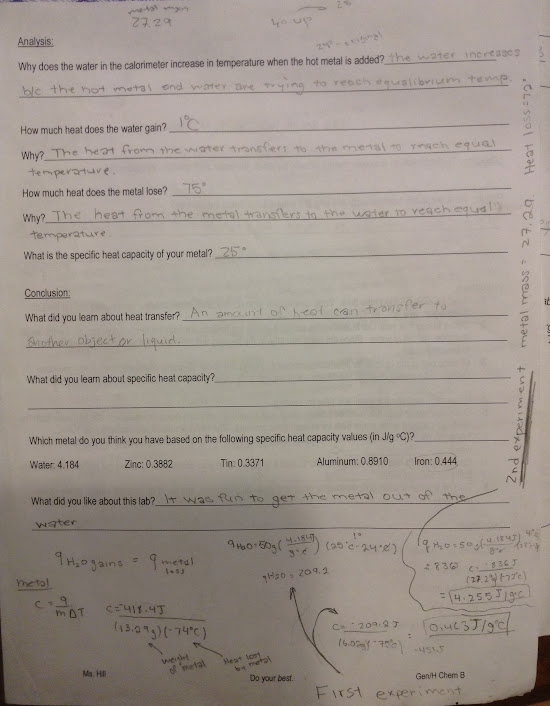 metal mass
27.29
Analysis:
Why does the water in the calorimeter increase in temperature when the hot metal is added? the water increases
b/c the hot metal and water are trying to reach equalibrium temp.
How much heat does the water gain? 1°C
Why? The heat from the water transfers to the metal to reach equal
temperature.
How much heat does the metal lose? 75°
Why? The heat from the metal transfers to the water to reach equal
temperature.
What is the specific heat capacity of your metal? 25°
Conclusion:
What did you learn about heat transfer? An amount of heat can transfer to
another object or liquid.
What did you learn about specific heat capacity?
Which metal do you think you have based on the following specific heat capacity values (in J/g °C)?
Water: 4.184 Zinc: 0.3882 Tin: 0.3371 Aluminum: 0.8910 Iron: 0.444
What did you like about this lab? It was fun to get the metal out of the
water
2nd experiment metal mass = 27.29 Heat loss = 72°
q H2O gains = q metal loss
q H2O = 50g (4.184J/g°c) (25°c - 24°c)
1°
q H2O = 209.2
q H2O = 50g (4.184J
= 836
c = -836J
(27.2g)(-72°c)
= 4.255J/g°c
metal
C = q
m ΔT
C = 418.4J
(13.09g)(-74°C)
weight of metal
Heat lost by metal
C = -209.2J
= 0.463J/g°C
-451.5
First experiment
Ms. Hill
Do your best.
Gen/H Chem B